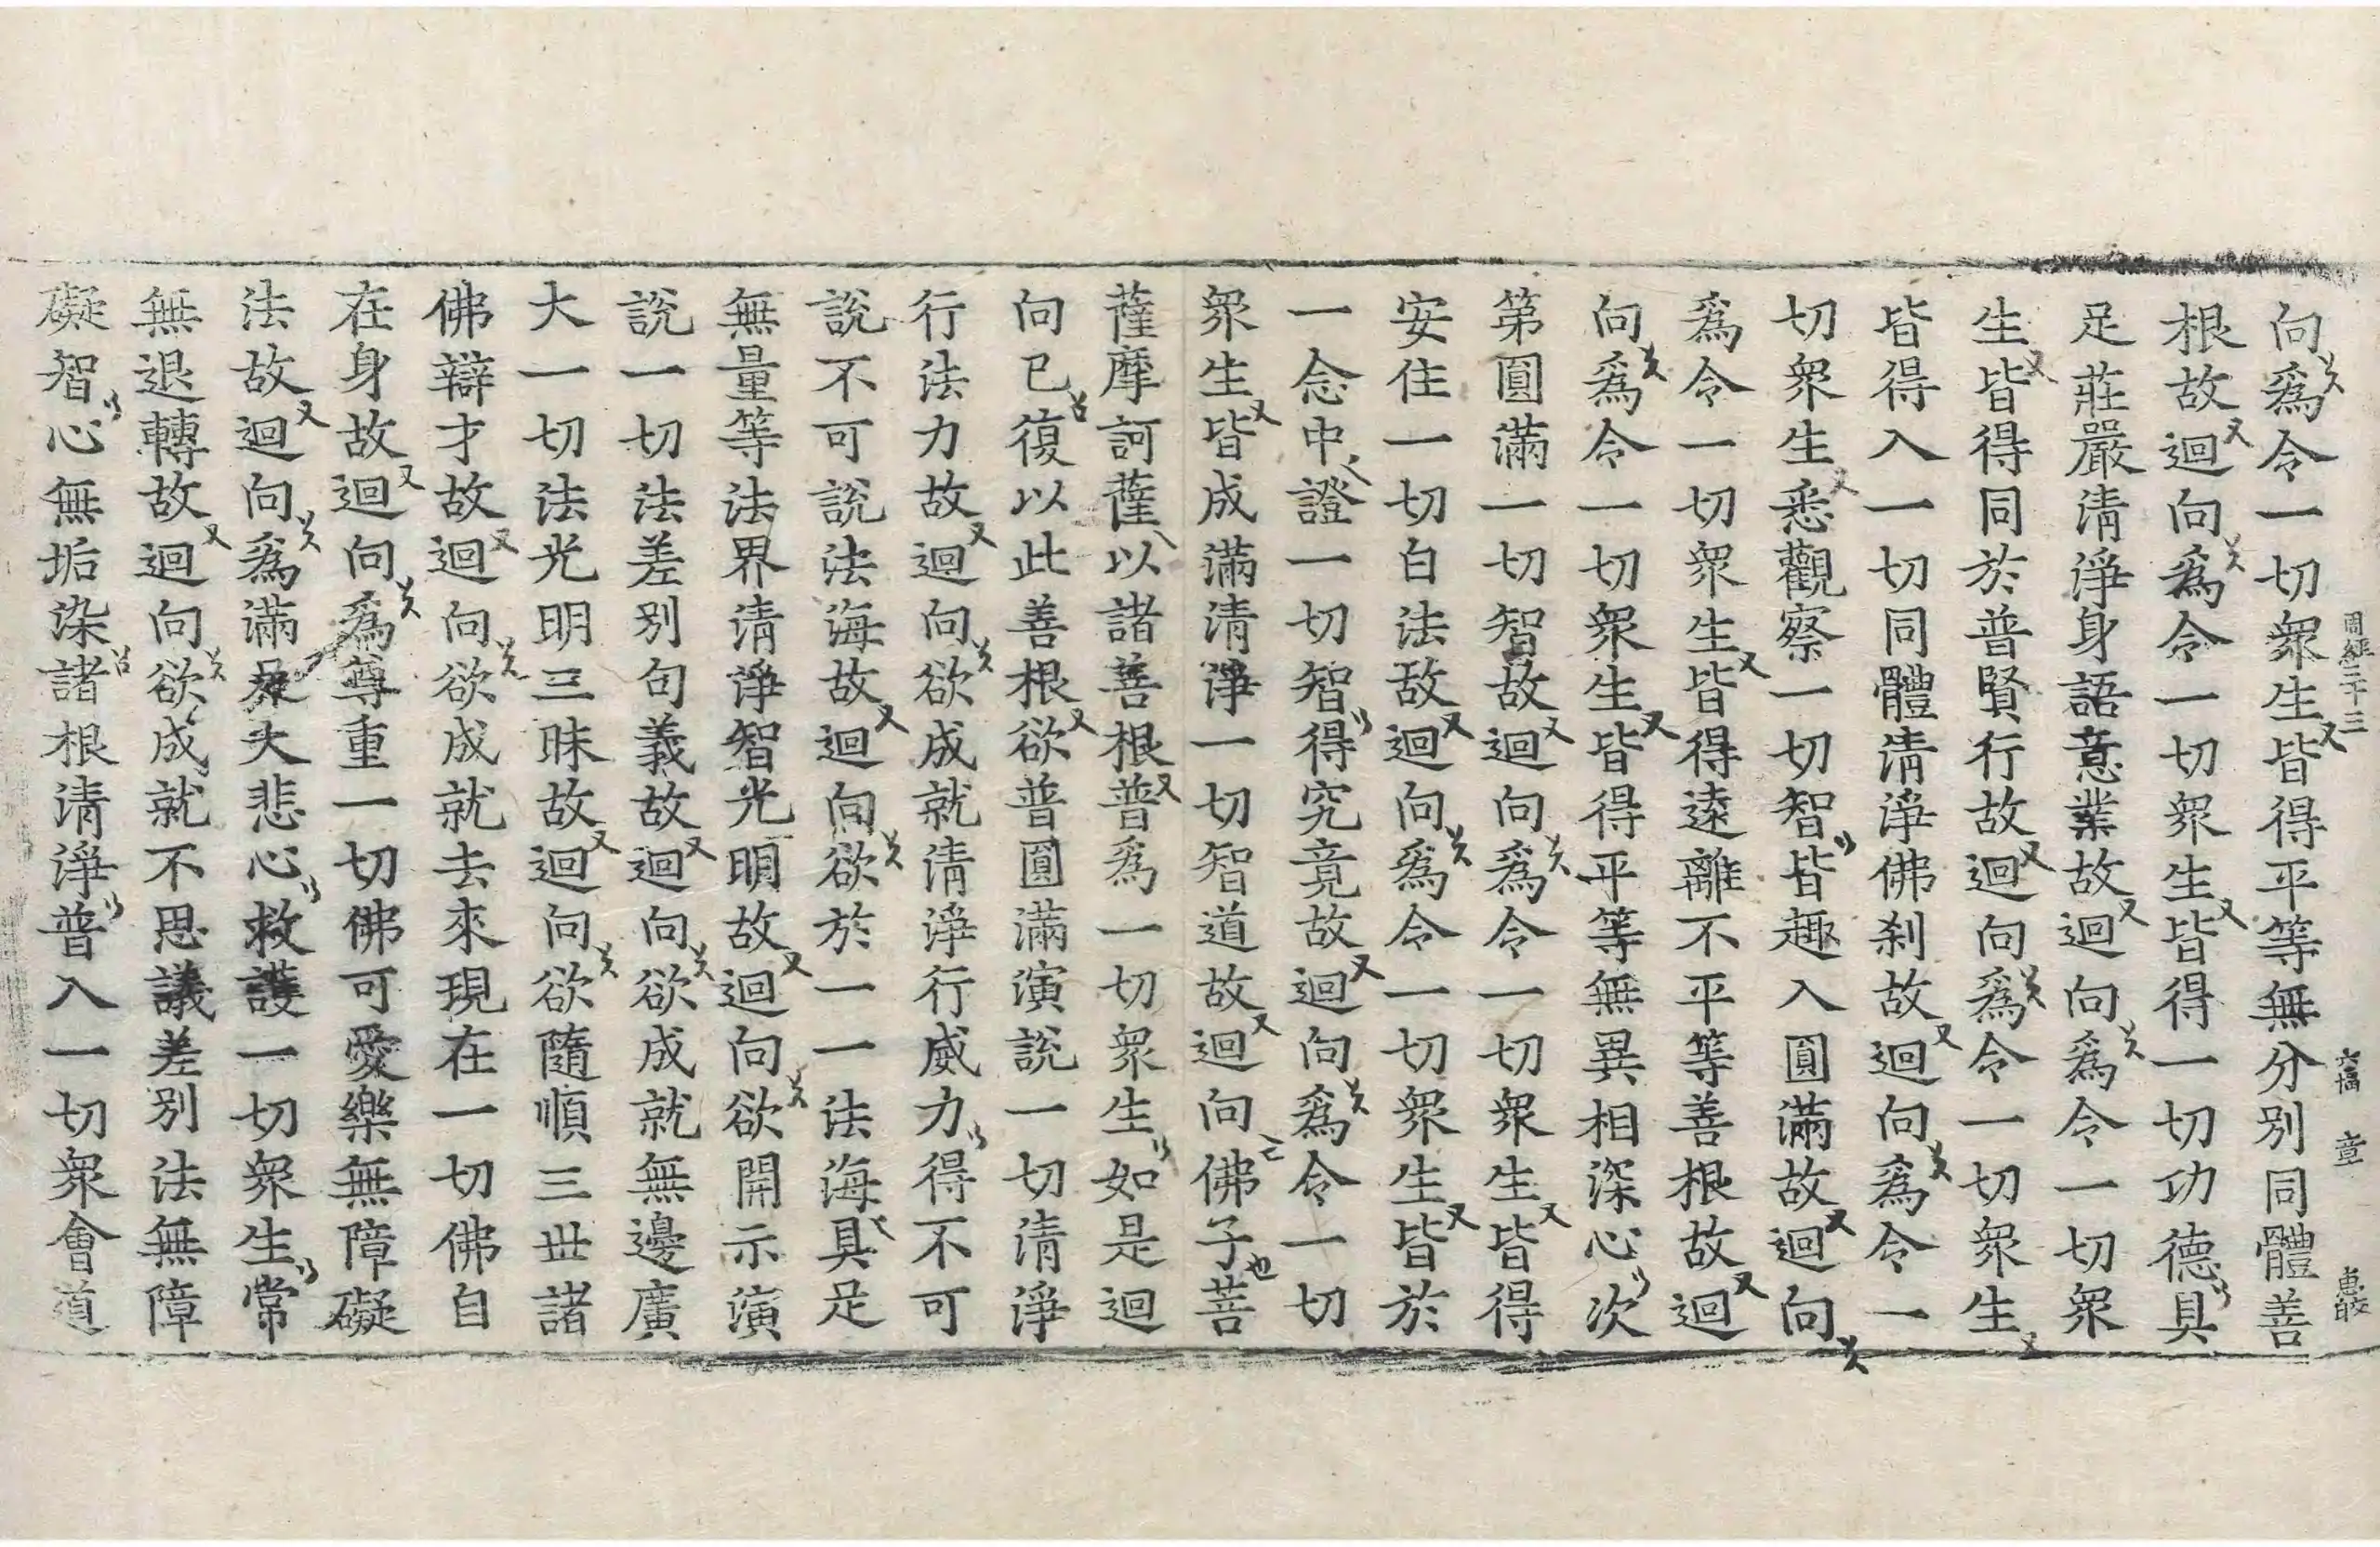 周經三十三 六幅 章
向爲令一切衆生皆得平等無分別同體善
根故迴向爲令一切衆生皆得一切功德具
足莊嚴清淨身語意業故迴向爲令一切衆
生皆得同於普賢行故迴向爲令一切衆生
皆得入一切同體清淨佛刹故迴向爲令一
切衆生悉觀察一切智皆趣入圓滿故迴向
爲令一切衆生皆得遠離不平等善根故迴
向爲令一切衆生皆得平等無異相深心次
第圓滿一切智故迴向爲令一切衆生皆得
安住一切白法故迴向爲令一切衆生皆於
一念中證一切智得究竟故迴向爲令一切
衆生皆成滿清淨一切智道故迴向佛子菩
薩摩訶薩以諸善根普爲一切衆生如是迴
向已復以此善根欲普圓滿演說一切清淨
行法力故迴向欲成就清淨行威力得不可
說不可說法海故迴向欲於一一法海具足
無量等法界清淨智光明故迴向欲開示演
說一切法差別句義故迴向欲成就無邊廣
大一切法光明三昧故迴向欲隨順三世諸
佛辯才故迴向欲成就去來現在一切佛自
在身故迴向爲尊重一切佛可愛樂無障礙
法故迴向爲滿足大悲心救護一切衆生常
無退轉故迴向欲成就不思議差別法無障
礙智心無垢染諸根清淨普入一切衆會道